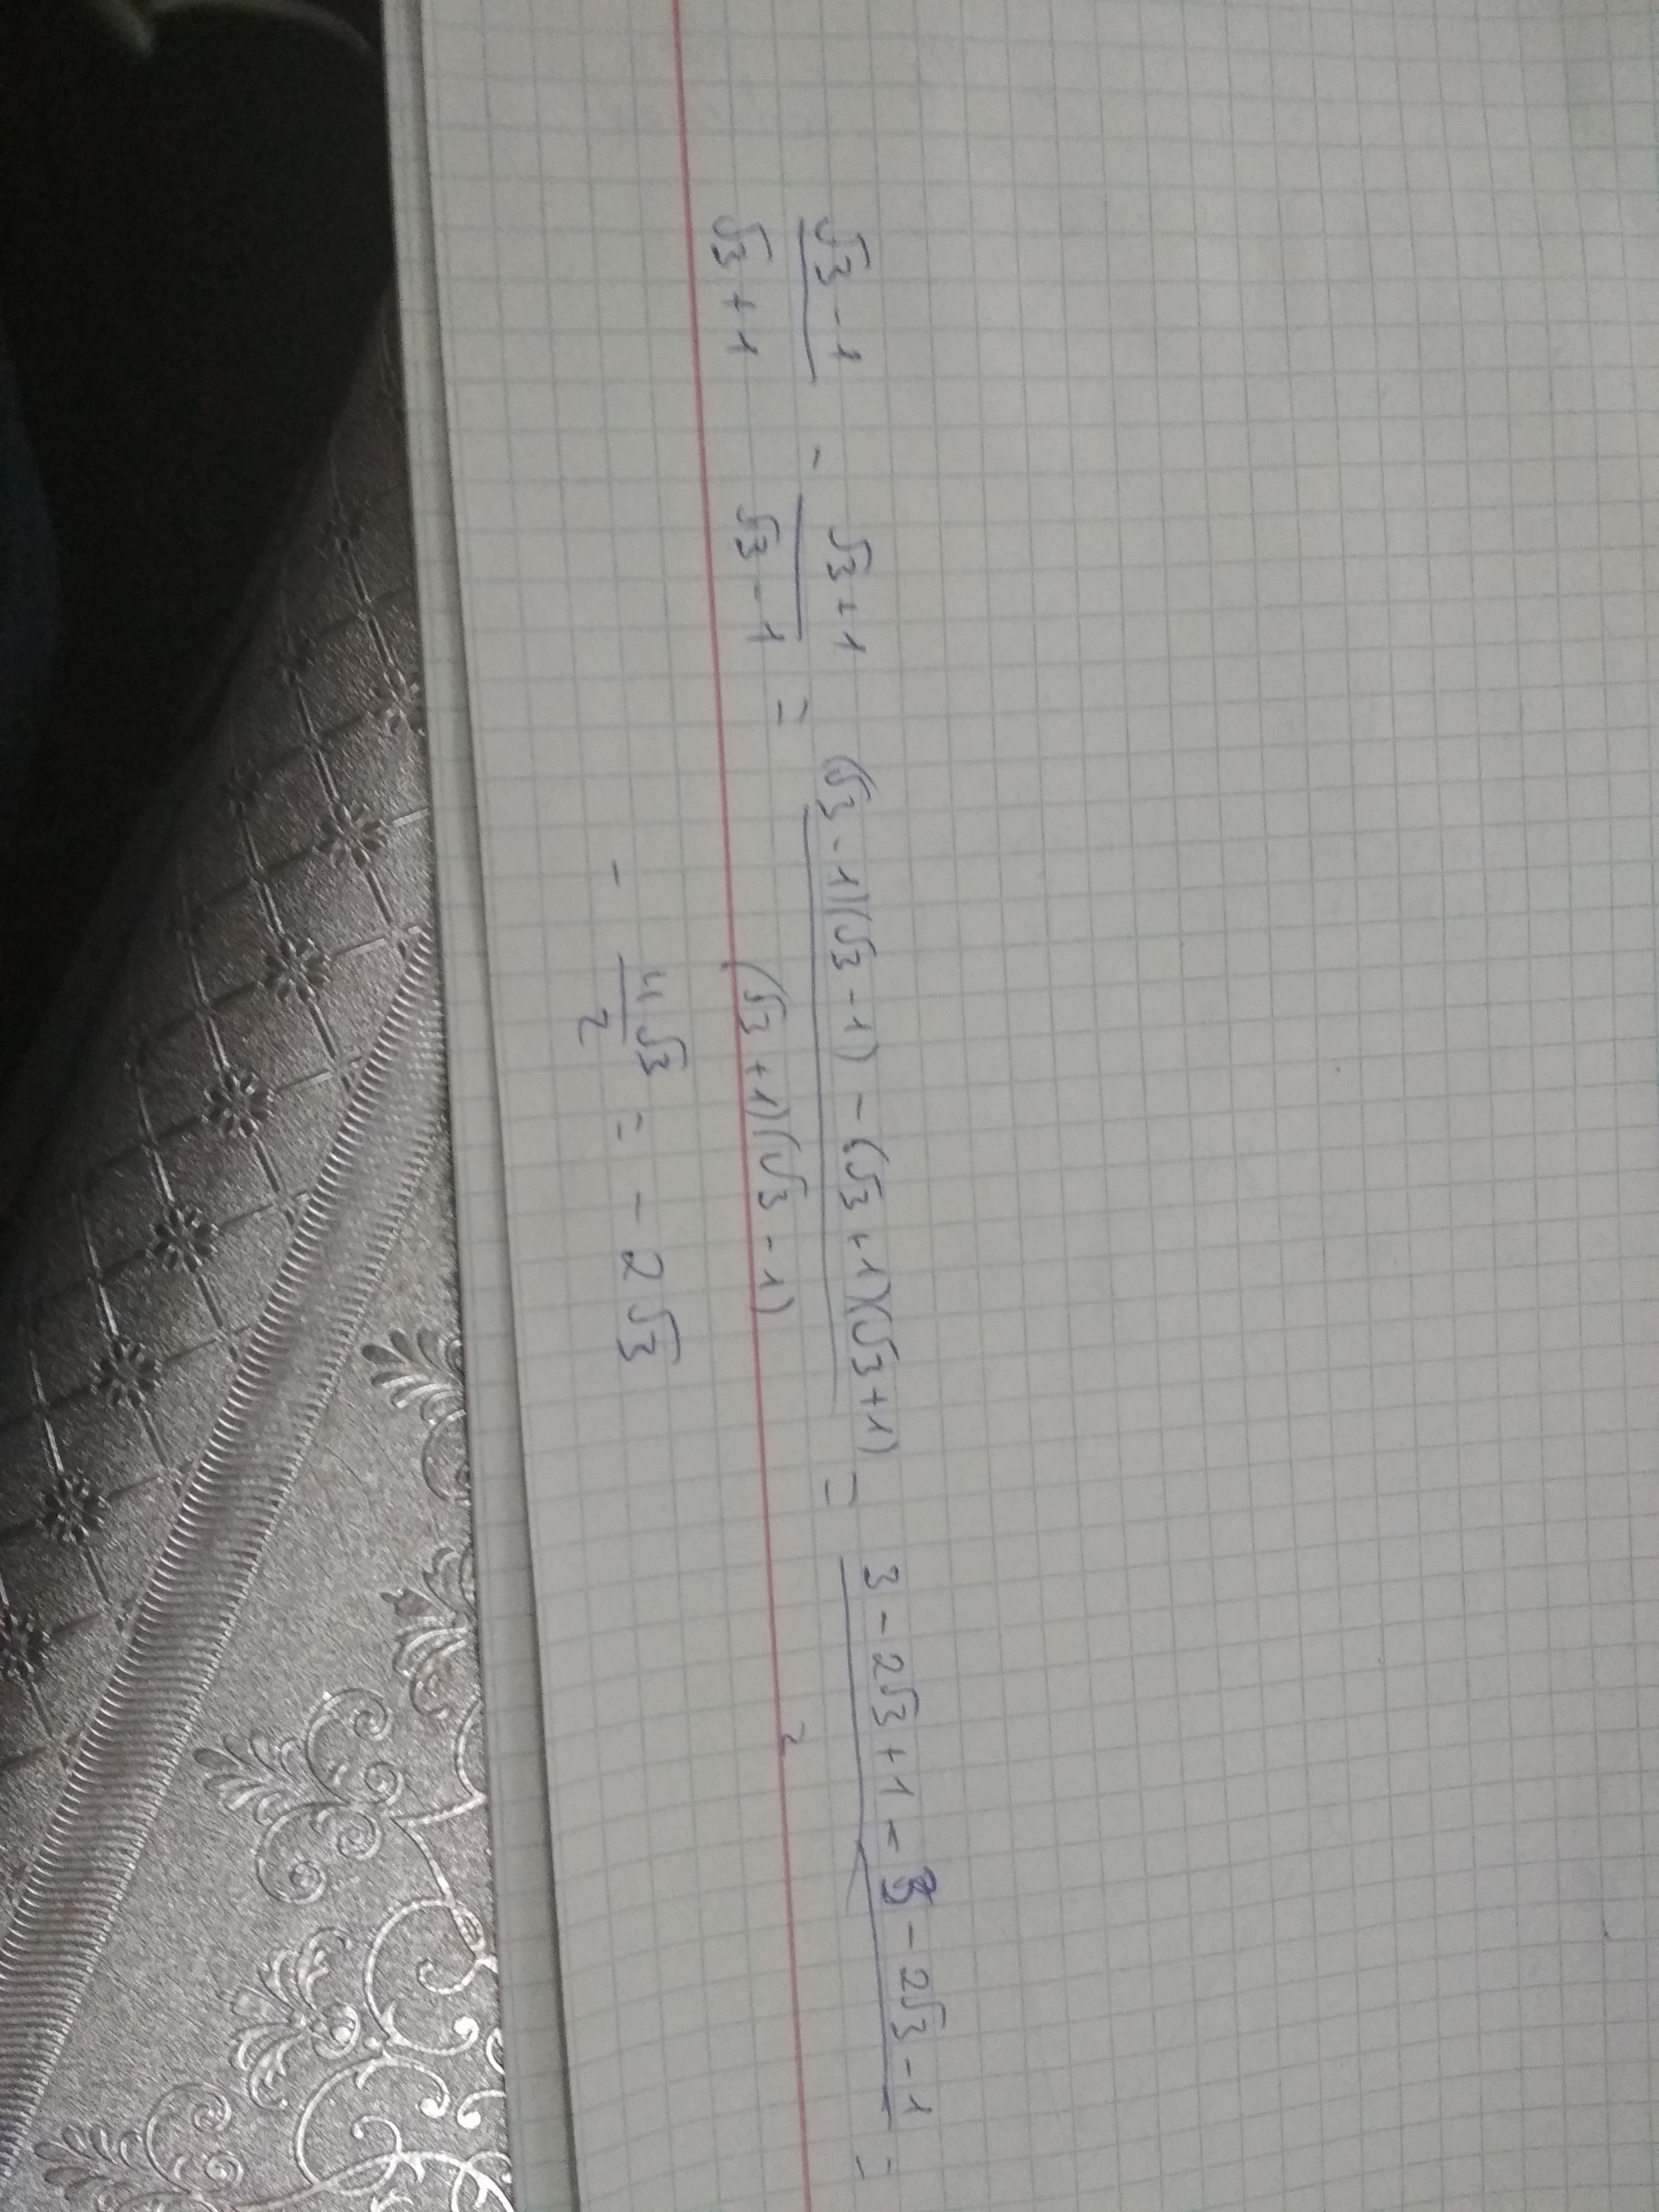 (√3 - 1)/(√3 + 1) - (√3 + 1)/(√3 - 1) = ((√3 - 1)(√3 - 1) - (√3 + 1)(√3 + 1))/((√3 + 1)(√3 - 1)) = (3 - 2√3 + 1 - 3 - 2√3 - 1)/2 =
- 4√3/2 = - 2√3